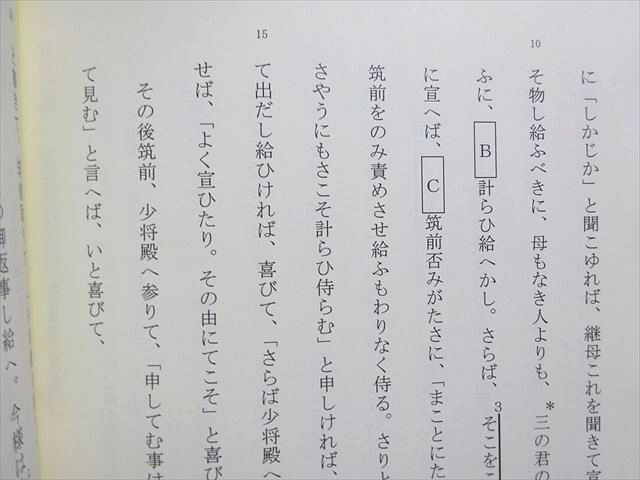 10
に「しかじか」と聞こゆれば、継母これを聞きて宣
そ物し給ふべきに、母もなき人よりも、*三の君の
ふに、B計らひ給へかし。さらば、3そこをこ
に宣へば、C筑前否みがたさに、「まことにた
筑前をのみ責めさせ給ふもわりなく侍る。さりと
さやうにもさこそ計らひ侍らむ」と申しければ、
15
て出だし給ひければ、喜びて、「さらば少将殿へ
せば、「よく宣ひたり。その由にてこそ」と喜び
その後筑前、少将殿へ参りて、「申してむ事は
て見む」と言へば、いと喜びて、
御返事し給へ。今様は